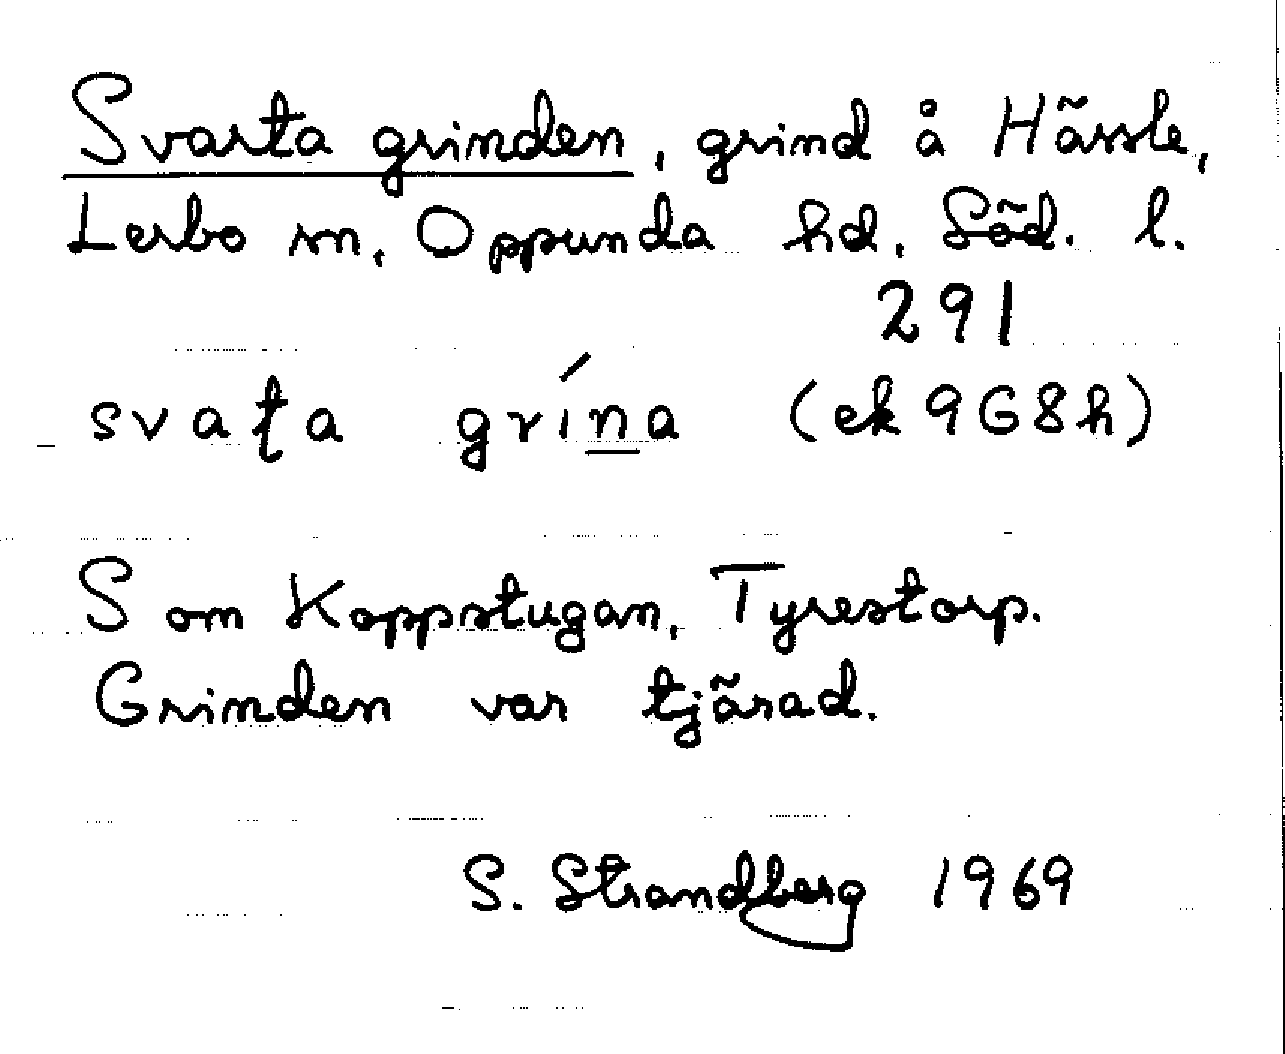 Svarta grinden, grind å Hässle,
Lerbo sn, Oppunda hd, Söd. l.
291
svaʈa grína (ek 9G8h)
S om Koppstugan, Tyrestorp.
Grinden var tjärad.
S. Strandberg 1969